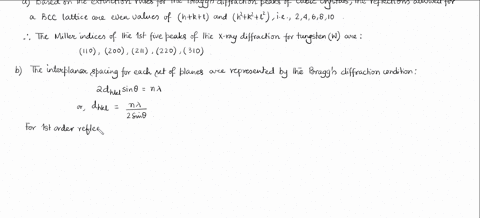 a) Based on the extinction rules for the Bragg's diffraction peaks of cubic crystals, the reflections allowed for
a BCC lattice are even values of (h+k+l) and (h²+k²+l²), i.e., 2,4,6,8,10.
∴ The Miller indices of the 1st five peaks of the x-ray diffraction for tungsten (W) are:
(110), (200), (211), (220), (310)
b) The interplaner spacing for each set of planes are represented by the Bragg's diffraction condition:
2d_hkl sinθ = nλ
or, d_hkl = nλ / 2sinθ
For 1st order reflec